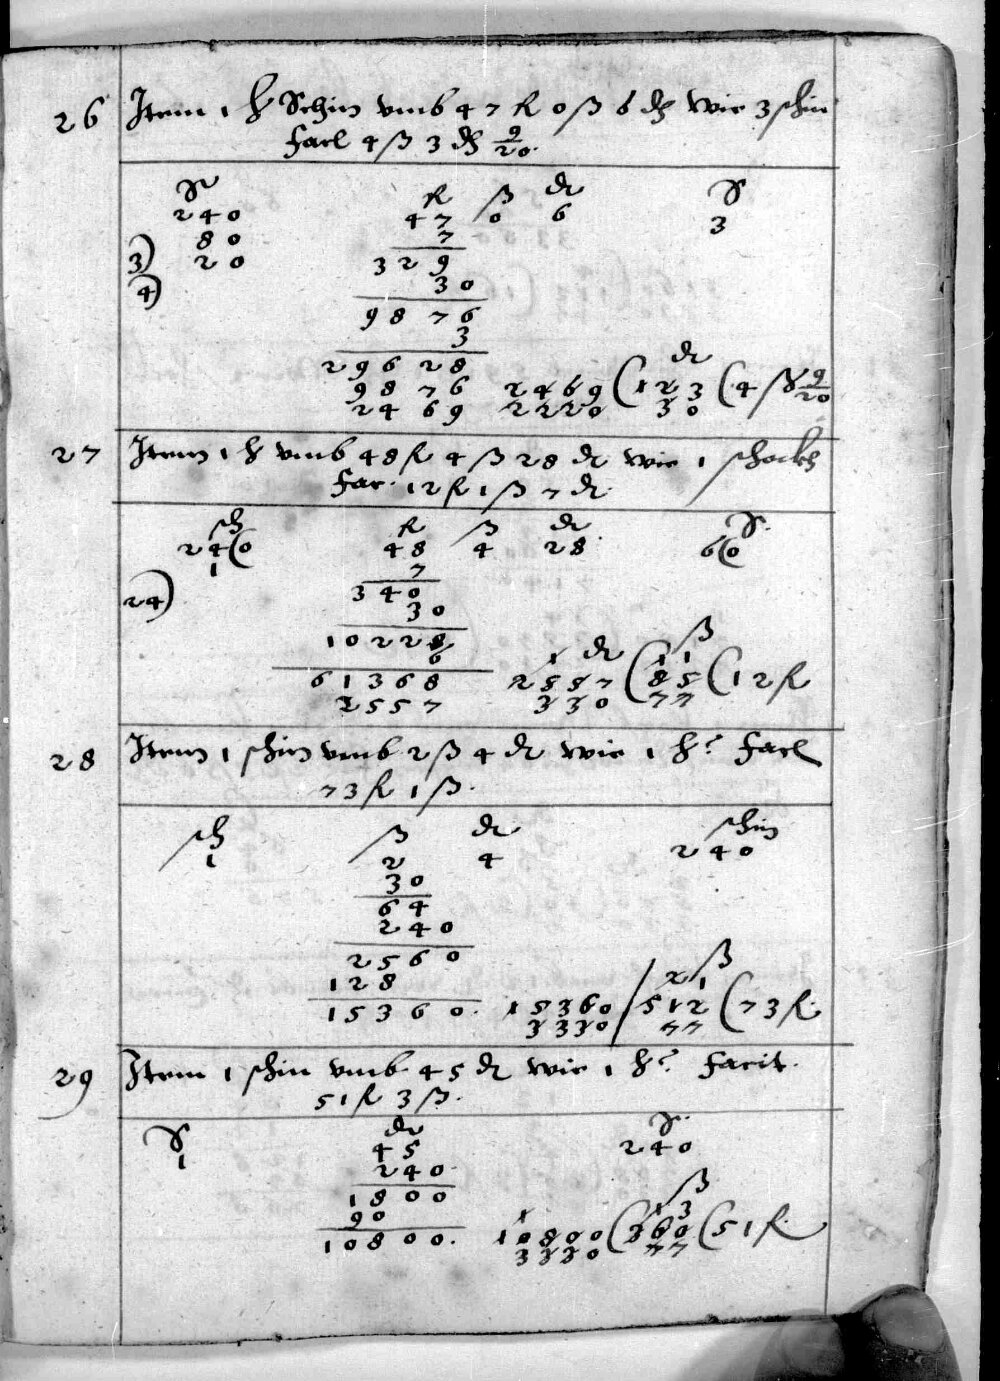 26 Item 1 ℔ Schin vmb 47 fl 0 ß 6 ₰ wie 3 schin
facl 4 ß 3 ₰ 9/20.
fl ß ₰
240 47 0 6 3
80 7
3) 20 329
4) 30
9876
3
29628 ₰
9876 2469 (123 (4 ß 9/20
2469 2220 30
27 Item 1 ℔ vmb 48 fl 4 ß 28 ₰ wie 1 schockh
fac. 12 fl 1 ß 7 ₰
sch fl ß ₰
24(0 48 4 28 6(0
1 7
24) 340
30
10228 ß
6 1 ₰ 1 1
61368 2557 (85 (12 fl
2557 330 77
28 Item 1 schin vmb 2 ß 4 ₰ wie 1 ℔? facl
73 fl 1 ß.
sch ß ₰ schin
1 2 4 240
30
64
240
2560 ß
128 2 1
15360 15360 / 512 (73 fl.
3330 77
29 Item 1 schin vmb 45 ₰ wie 1 ℔? facit.
51 fl 3 ß.
₰
1 45 240
240
1800 ß
90 1 1 3
10800. 10800 (360 (51 fl.
3330 77